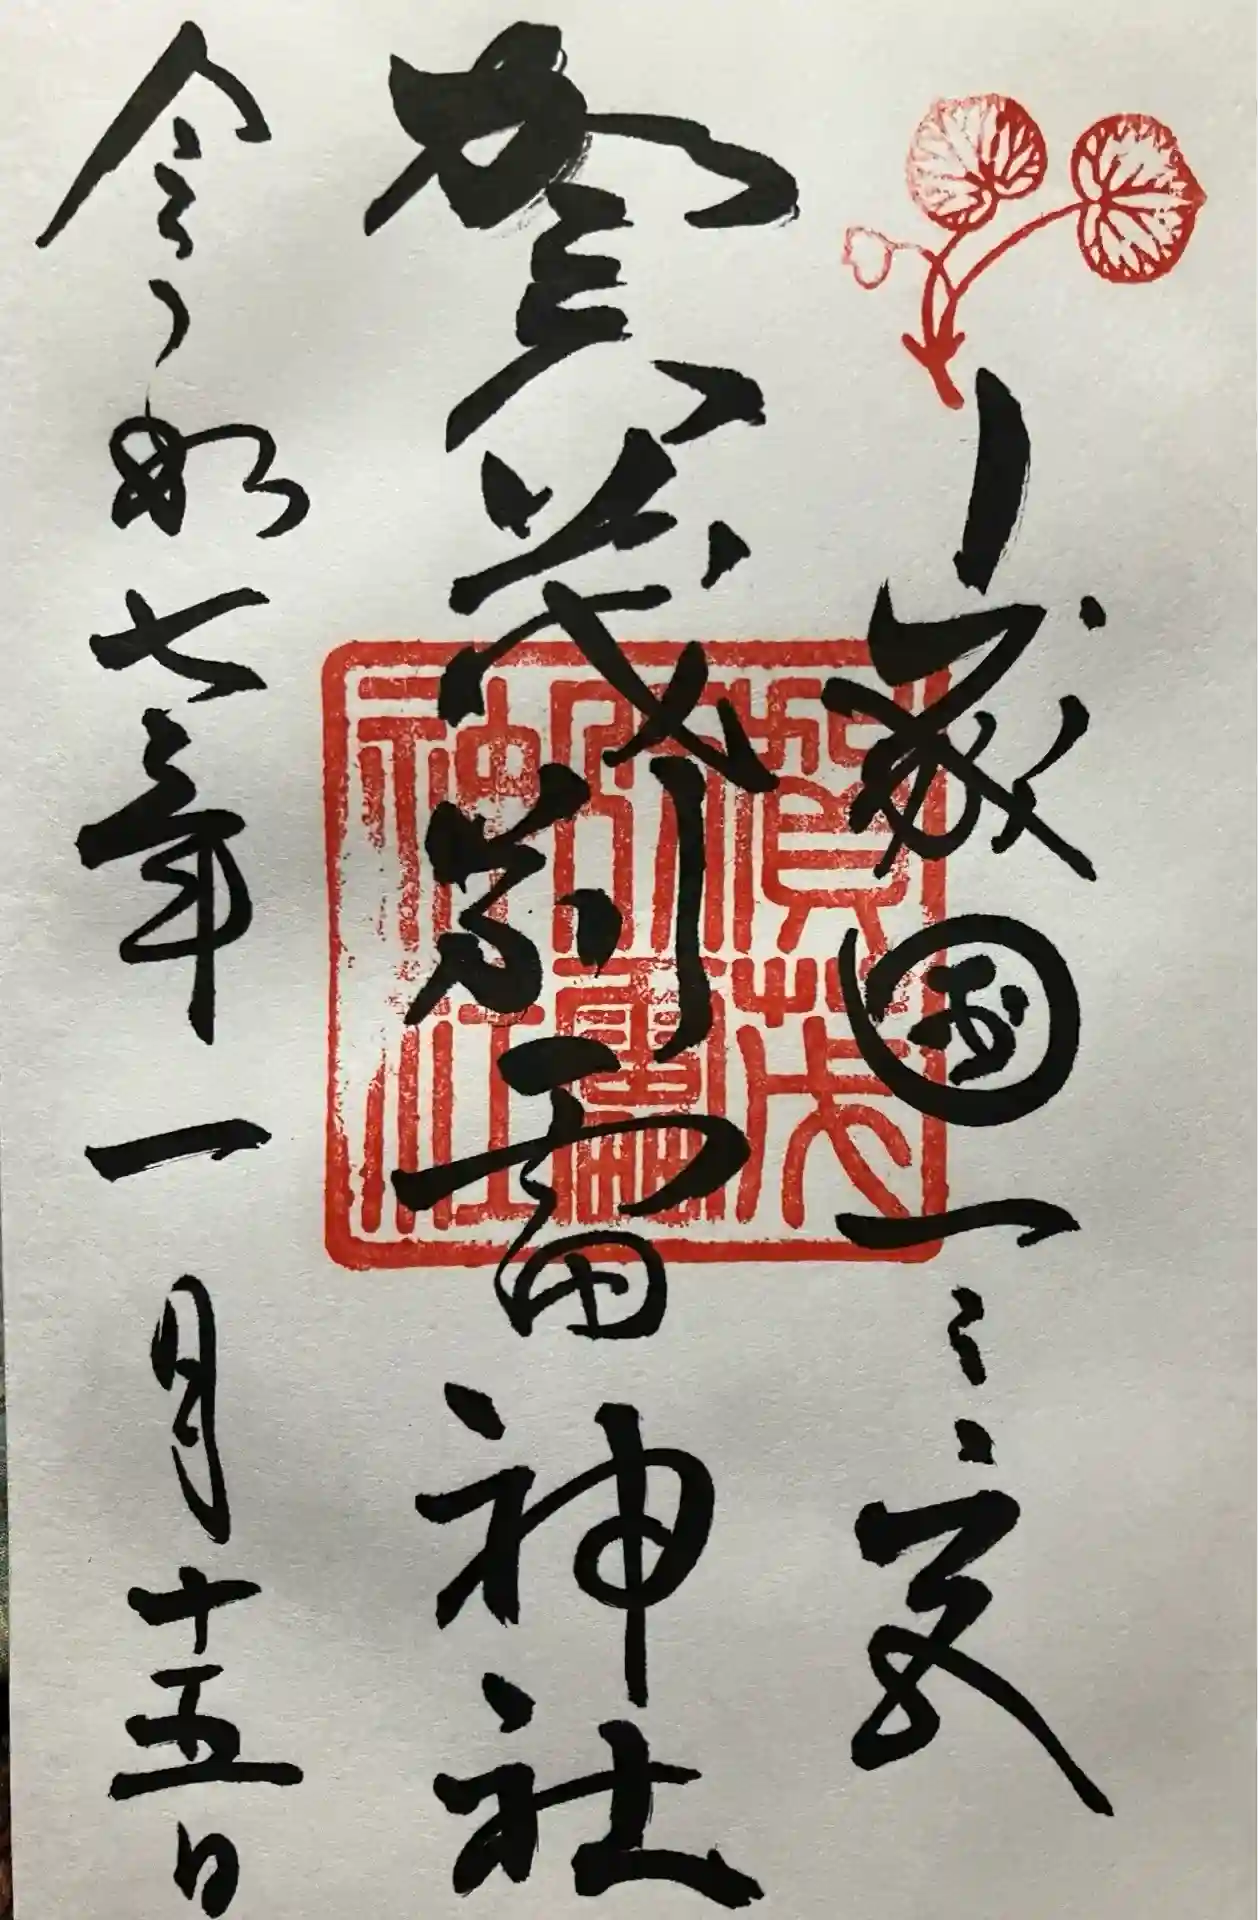 山城國一之宮
賀茂別雷神社
令和七年一月十五日
賀茂
別雷
神社